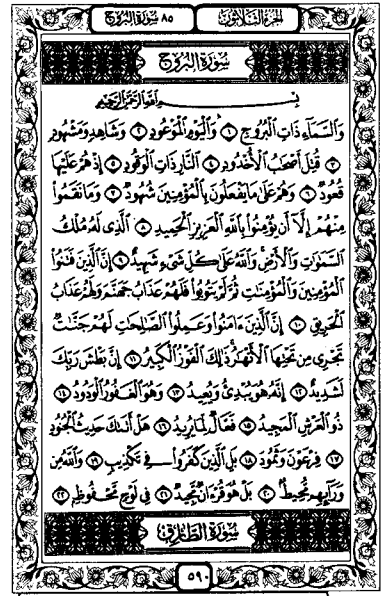 الجزء الثلاثون ٨٥ سورة البروج
سورة البروج
بسم الله الرحمن الرحيم
وَالسَّمَاءِ ذَاتِ الْبُرُوجِ ١ وَالْيَوْمِ الْمَوْعُودِ ٢ وَشَاهِدٍ وَمَشْهُودٍ
٣ قُتِلَ أَصْحَابُ الْأُخْدُودِ ٤ النَّارِ ذَاتِ الْوَقُودِ ٥ إِذْ هُمْ عَلَيْهَا
قُعُودٌ ٦ وَهُمْ عَلَىٰ مَا يَفْعَلُونَ بِالْمُؤْمِنِينَ شُهُودٌ ٧ وَمَا نَقَمُوا
مِنْهُمْ إِلَّا أَن يُؤْمِنُوا بِاللَّهِ الْعَزِيزِ الْحَمِيدِ ٨ الَّذِي لَهُ مُلْكُ
السَّمَٰوَٰتِ وَالْأَرْضِ وَاللَّهُ عَلَىٰ كُلِّ شَيْءٍ شَهِيدٌ ٩ إِنَّ الَّذِينَ فَتَنُوا
الْمُؤْمِنِينَ وَالْمُؤْمِنَٰتِ ثُمَّ لَمْ يَتُوبُوا فَلَهُمْ عَذَابُ جَهَنَّمَ وَلَهُمْ عَذَابُ
الْحَرِيقِ ١٠ إِنَّ الَّذِينَ ءَامَنُوا وَعَمِلُوا الصَّٰلِحَٰتِ لَهُمْ جَنَّٰتٌ
تَجْرِي مِن تَحْتِهَا الْأَنْهَٰرُ ذَٰلِكَ الْفَوْزُ الْكَبِيرُ ١١ إِنَّ بَطْشَ رَبِّكَ
لَشَدِيدٌ ١٢ إِنَّهُ هُوَ يُبْدِئُ وَيُعِيدُ ١٣ وَهُوَ الْغَفُورُ الْوَدُودُ ١٤
ذُو الْعَرْشِ الْمَجِيدُ ١٥ فَعَّالٌ لِّمَا يُرِيدُ ١٦ هَلْ أَتَىٰكَ حَدِيثُ الْجُنُودِ
١٧ فِرْعَوْنَ وَثَمُودَ ١٨ بَلِ الَّذِينَ كَفَرُوا فِي تَكْذِيبٍ ١٩ وَاللَّهُ مِن
وَرَائِهِم مُّحِيطٌ ٢٠ بَلْ هُوَ قُرْءَانٌ مَّجِيدٌ ٢١ فِي لَوْحٍ مَّحْفُوظٍ ٢٢
سورة الطارق
٥٩٠